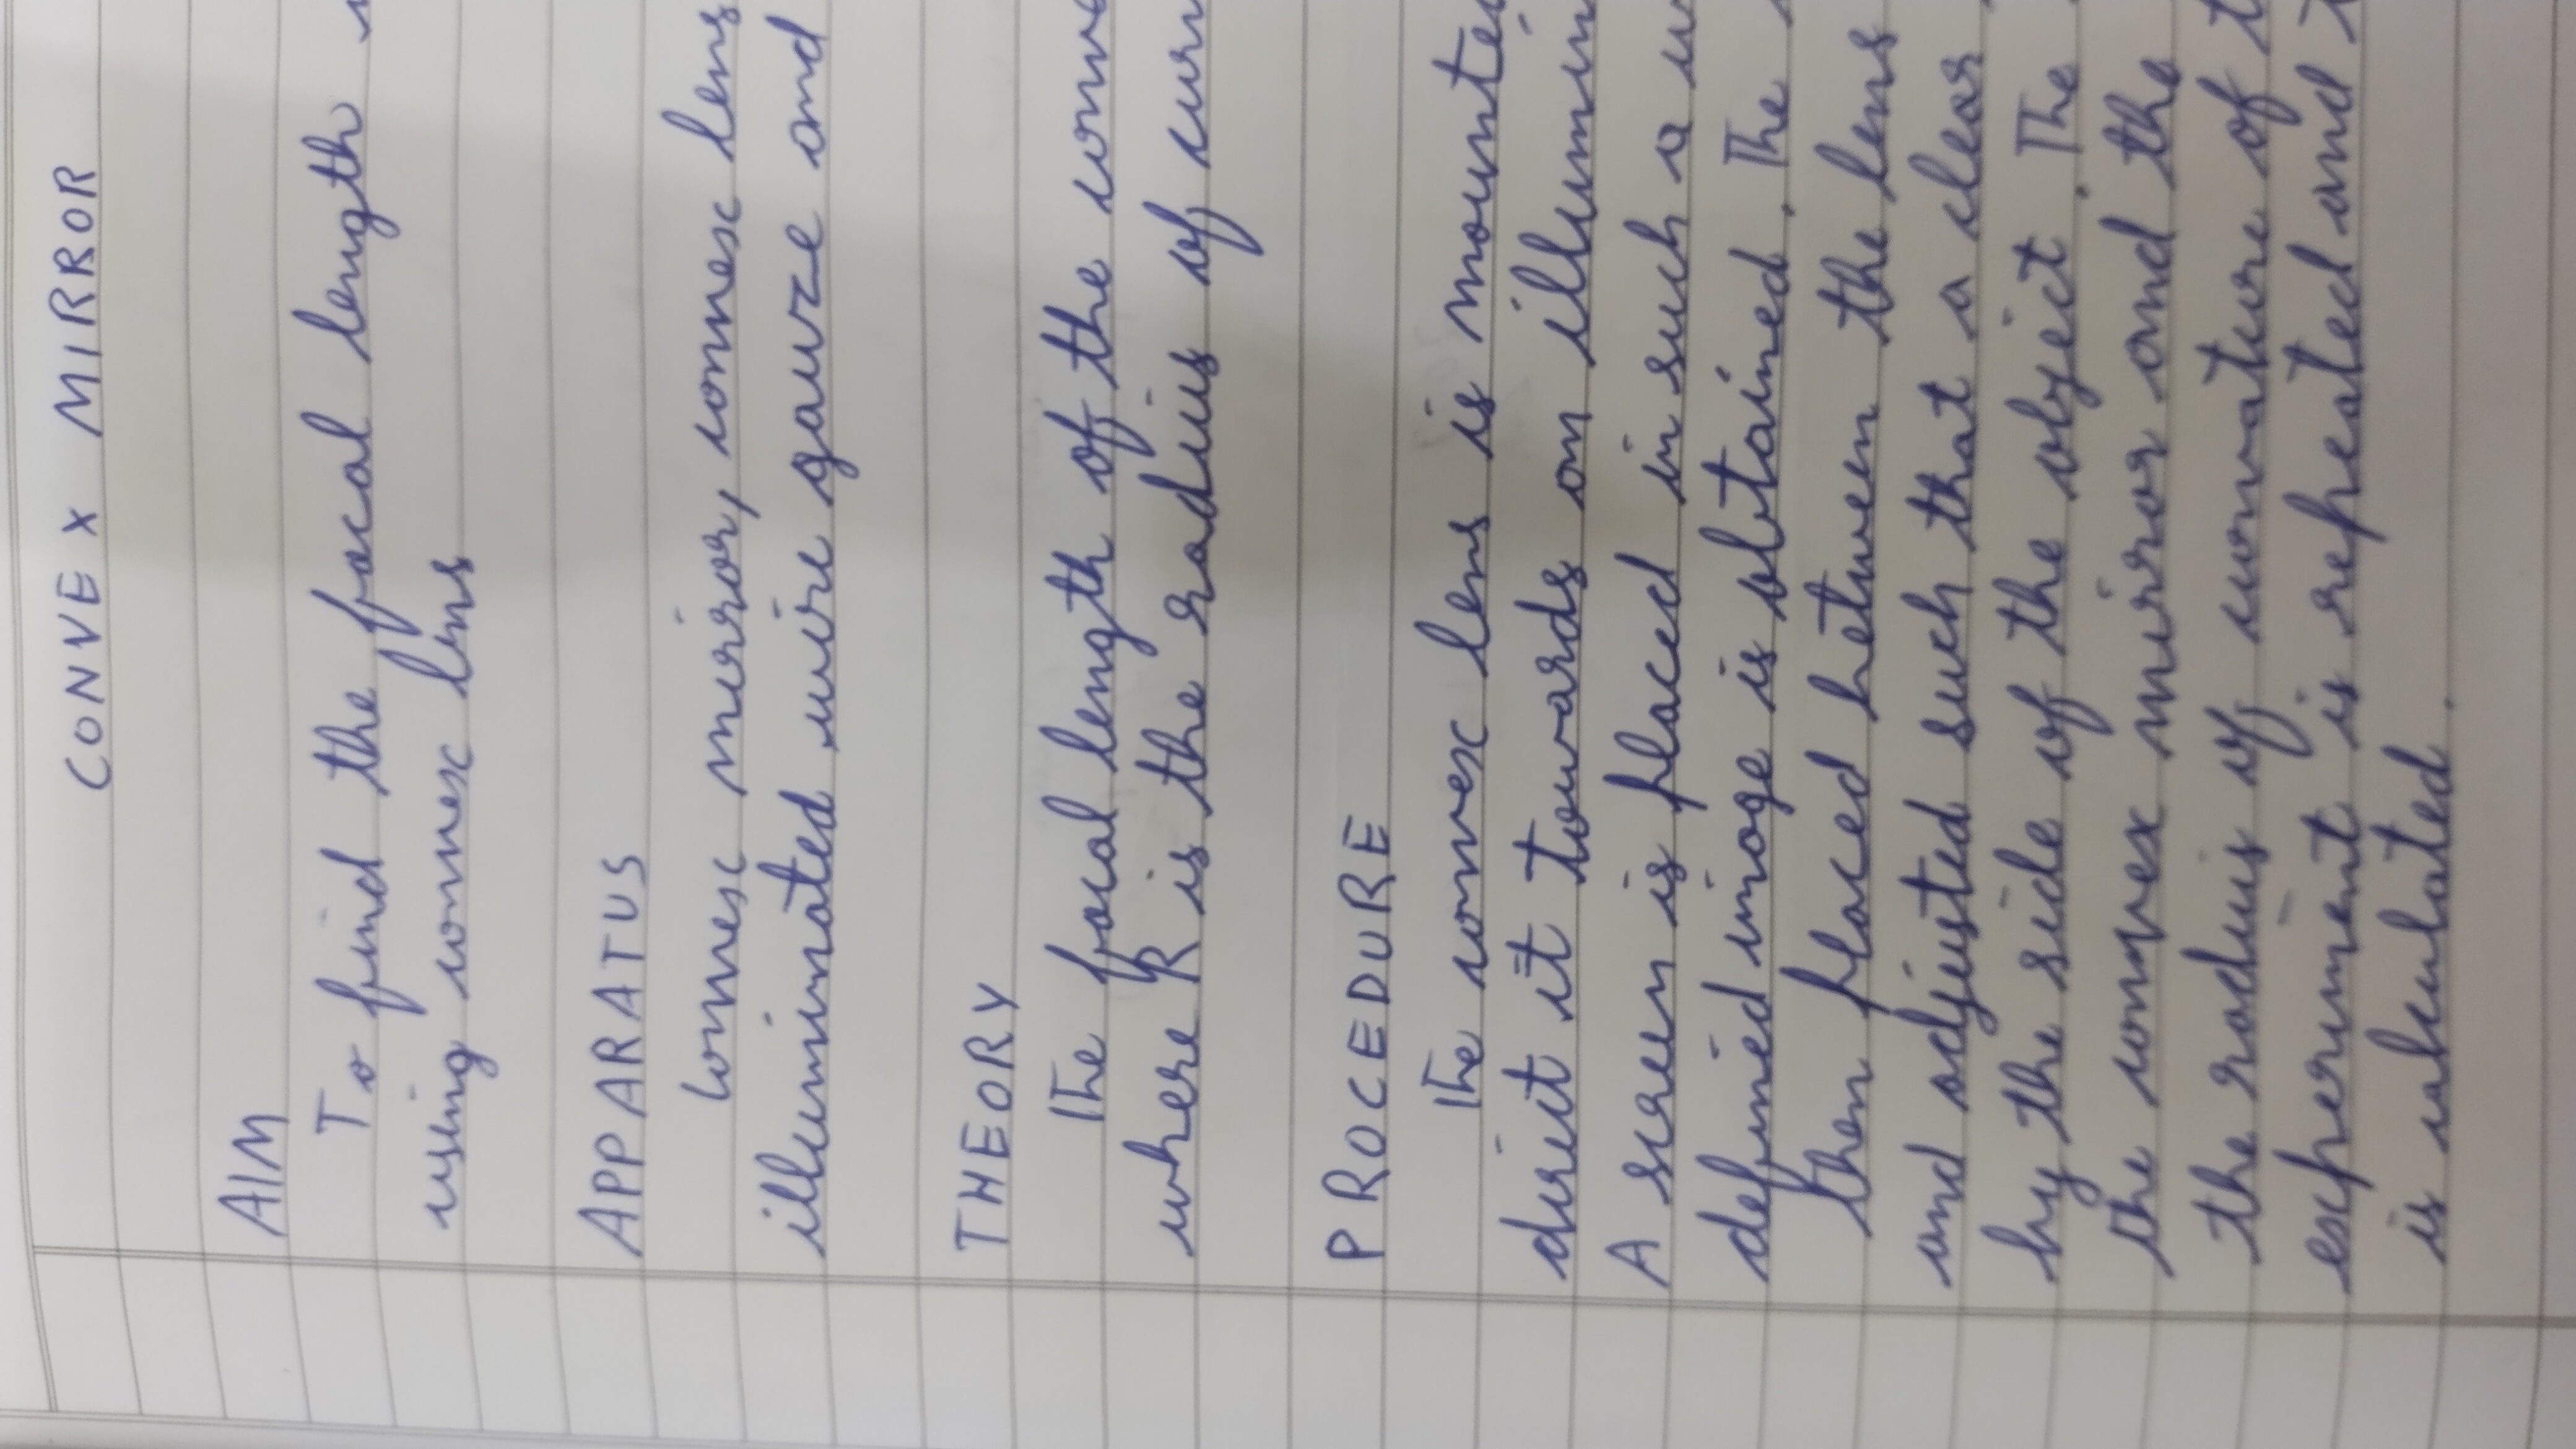 CONVEX MIRROR
AIM
To find the focal length
using convex lens
APPARATUS
Convex mirror, convex lens
illuminated wire gauze and
THEORY
The focal length of the conve
where R is the radius of curv
PROCEDURE
The convex lens is mounted
direct it towards an illumin
A screen is placed in such a w
defined image is obtained. The
then placed between the lens
and adjusted such that a clear
by the side of the object. The
the convex mirror and the
the radius of curvature of t
experiment is repeated and t
is calculated.